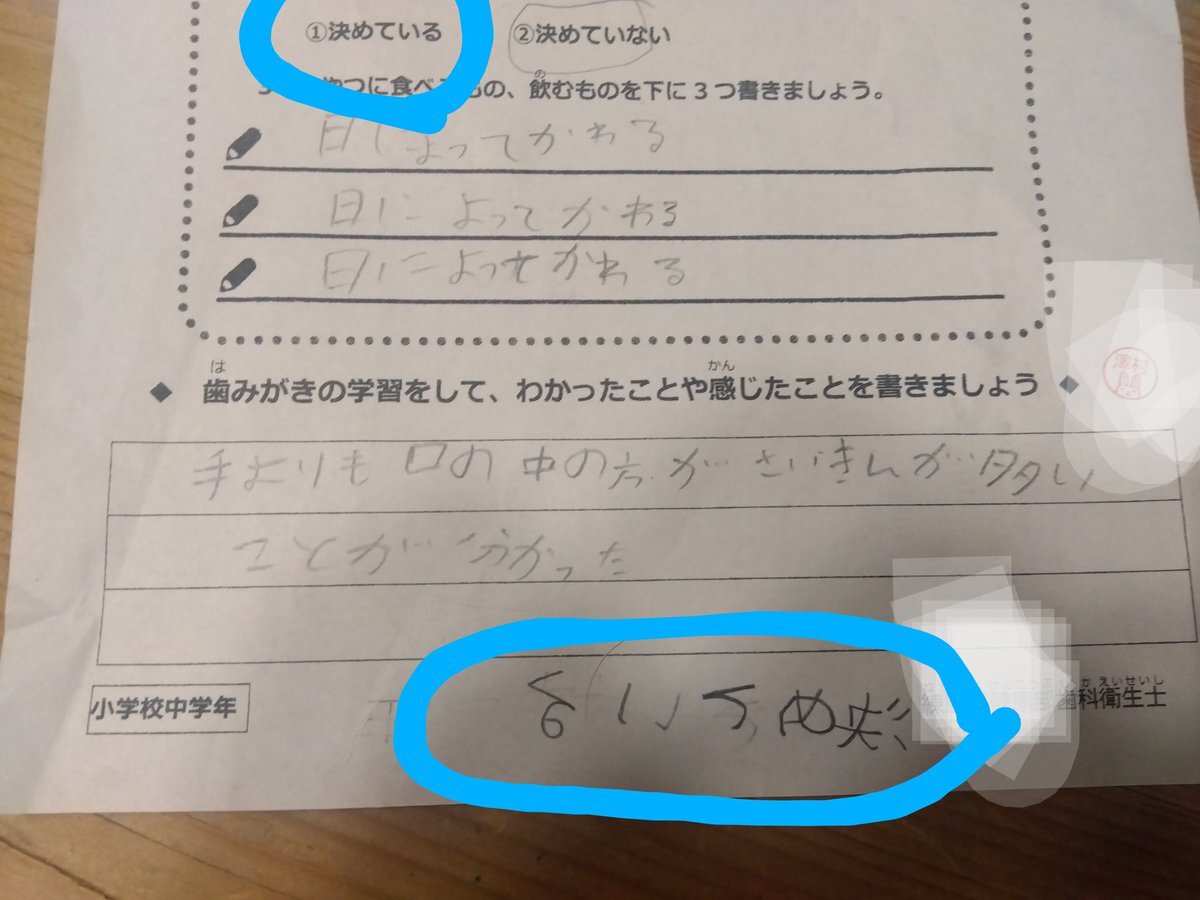 ①決めている ②決めていない
やつに食べ もの、飲むものを下に3つ書きましょう。
日によってかわる
日によってかわる
日によってかわる
◆ 歯みがきの学習をして、わかったことや感じたことを書きましょう ◆
手よりも口の中の方がさいきんが多い
ことが分かった
決めている
小学校中学年 歯科衛生士